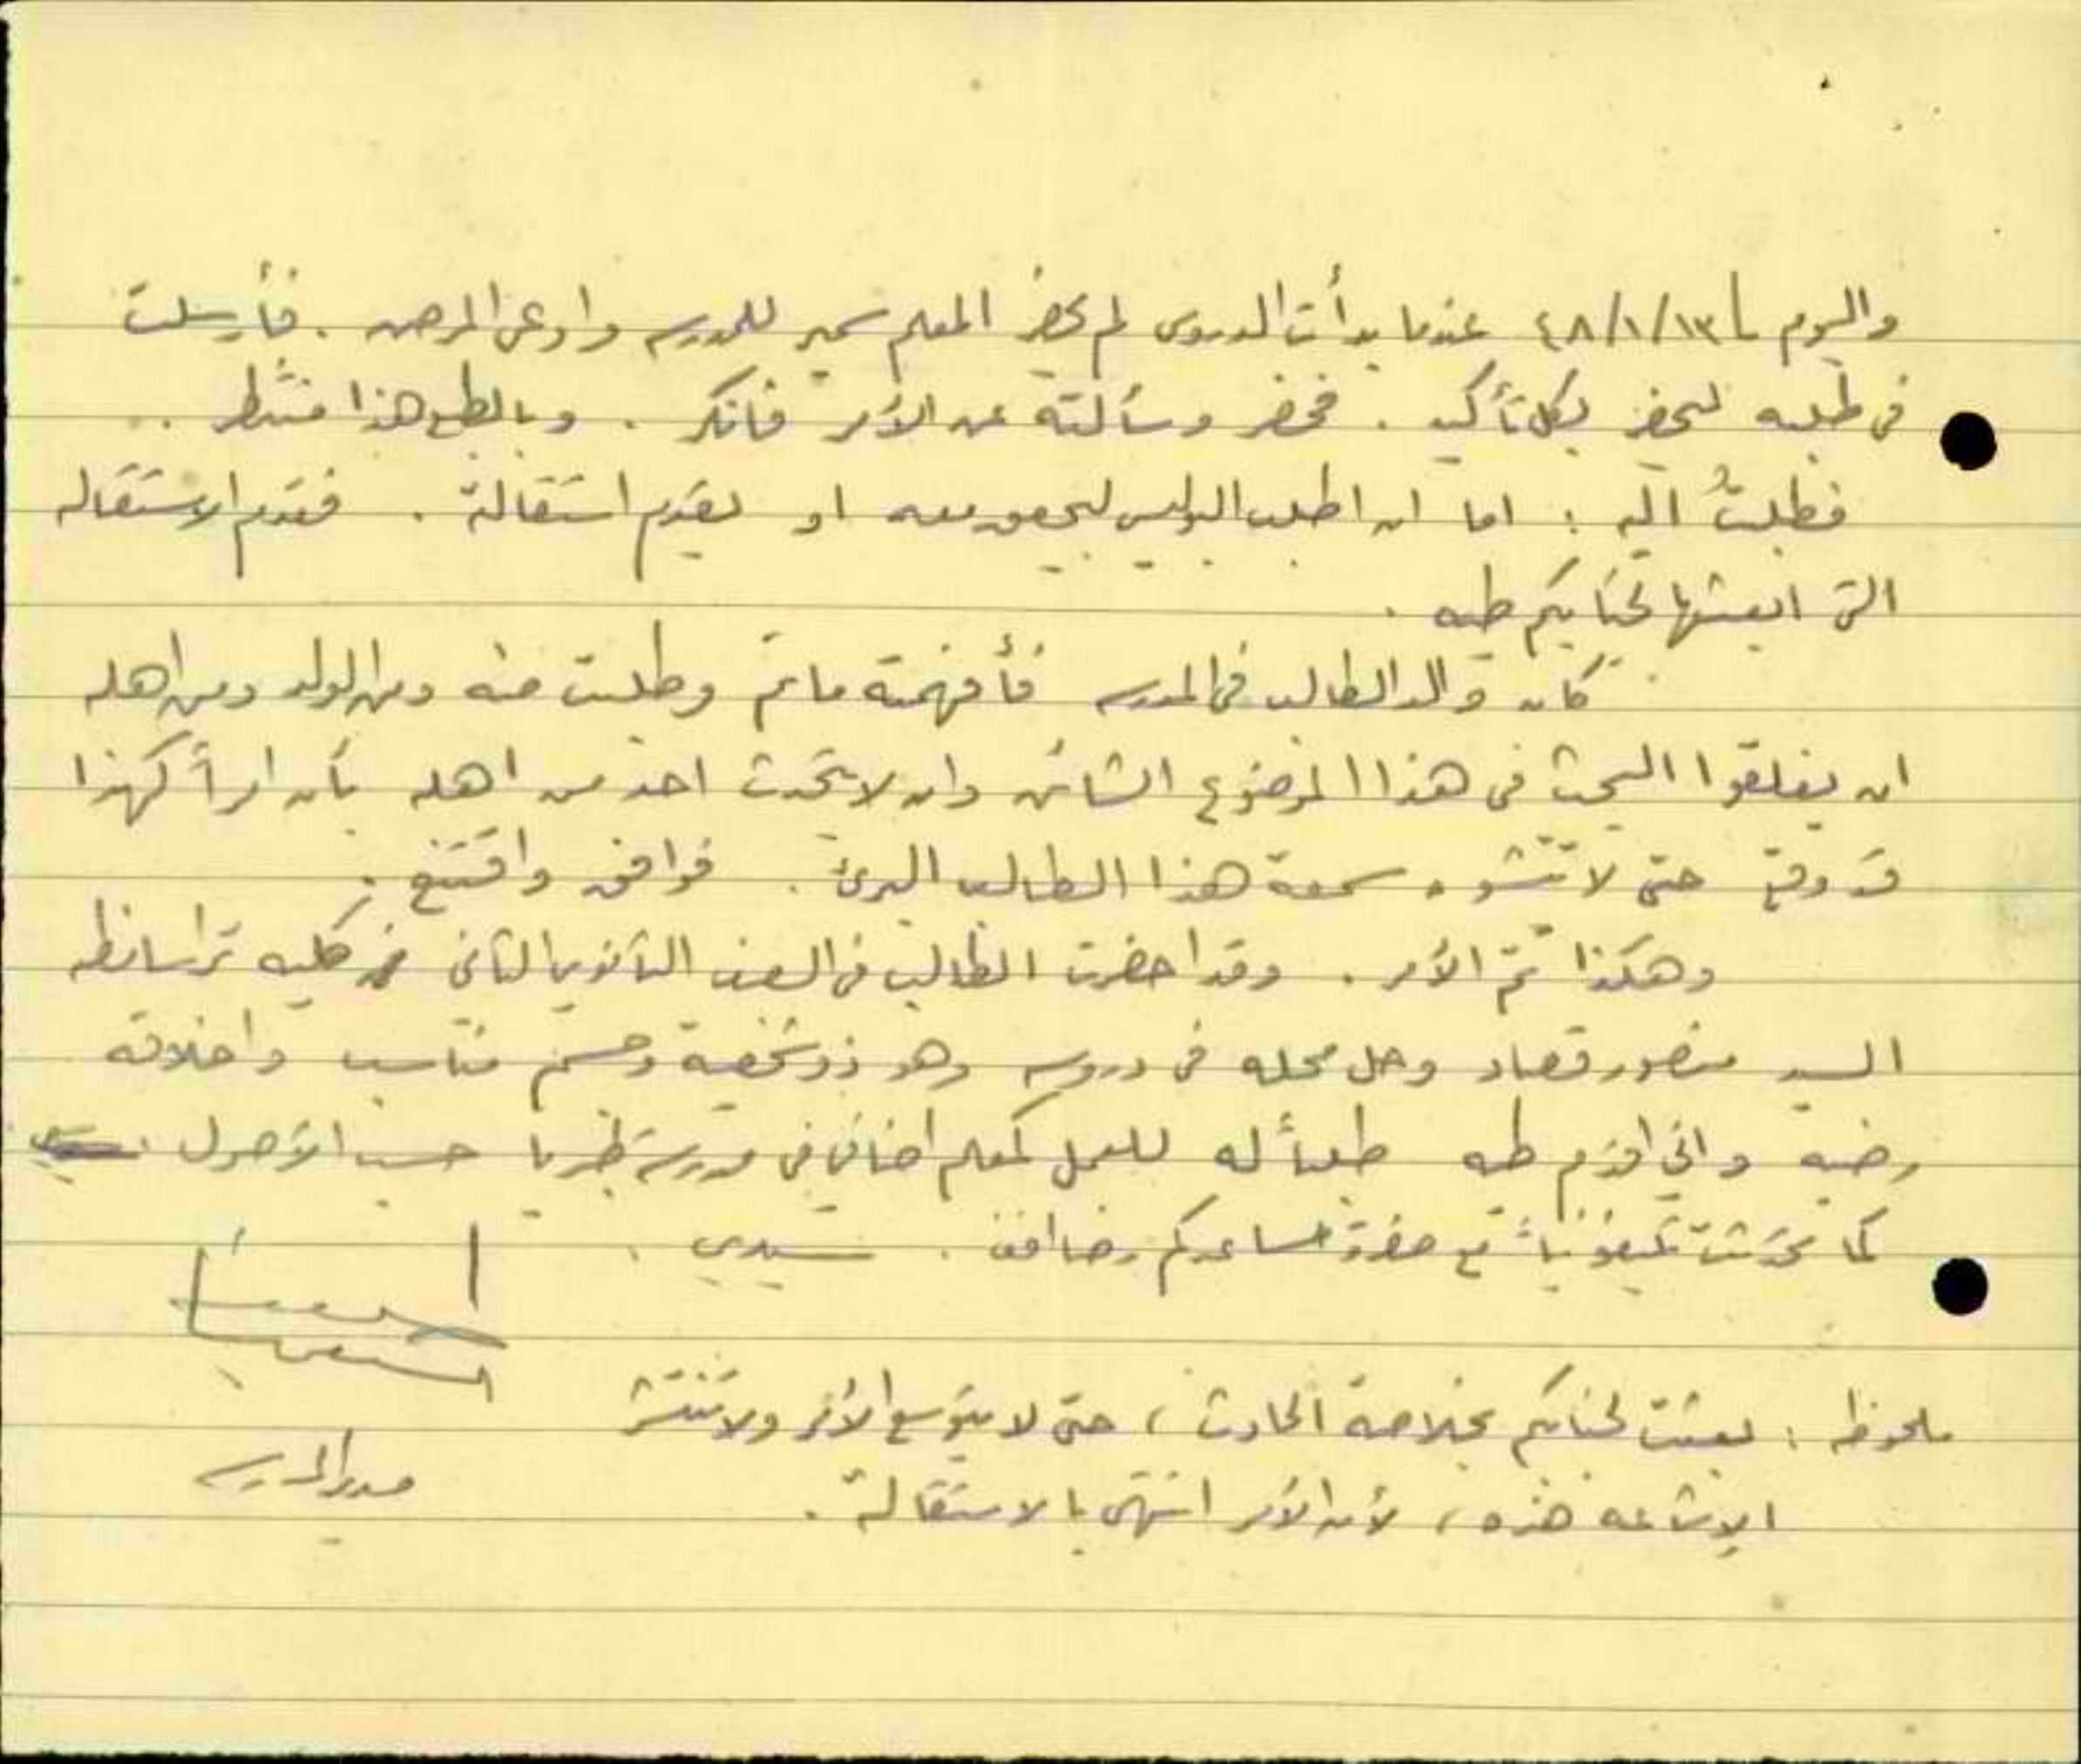 واليوم ١٣/١/٤٨ عندما بدأت الدروس لم يحضر المعلم سمير للمدرسه وادعى المرض . فأرسلت
في طلبه ليحضر بكل تأكيد . فحضر وسألته عن الأمر فانكر . وبالطبع هذا منتظر ..
فطلبتُ اليه : اما ان اطلب البوليس ليحقق معه او يقدم استقالة . فقدم الاستقاله
التي ابعثها لجنابكم طيه .
كان والد الطالب في المدرسه فأفهمته ما تم وطلبت منه ومن الولد ومن اهله
ان يغلقوا البحث في هذا الموضوع الشائن وان لا يتحدث احد من اهله بأن امراً كهذا
قد وقع حتى لا تتشوه سمعة هذا الطالب البرئ . فوافق واقتنع .
وهكذا تمّ الأمر . وقد احضرت الطالب في الصف الثانوي الثاني من كليه تراسانطه
السيد منصور قصاد وحل محله في دروسه وهو ذو شخصية وجسم مناسب واخلاقه
رضيه واني اقدم طيه طلباً له للعمل كمعلم اضافي في مدرسة طبريا حسب الأصول
كما تحدثت تليفونياً مع حضرة مساعدكم رضا افندي . سيدي .
ملحوظه : بعثت لجنابكم بخلاصة الحادث ، حتى لا يتوسع الأمر ولا تنتشر
مدير المدرسه
الإشاعه هذه ، لأن الأمر انتهى بالاستقالة .